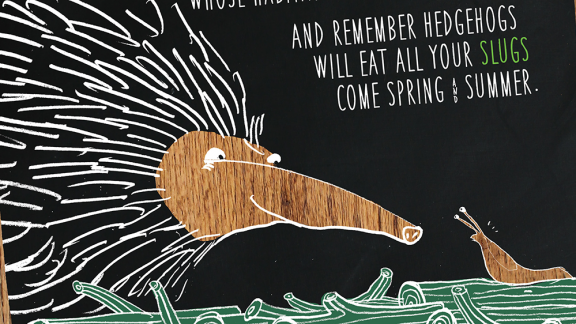 WHOSE
AND REMEMBER HEDGEHOGS
WILL EAT ALL YOUR SLUGS
COME SPRING AND SUMMER.